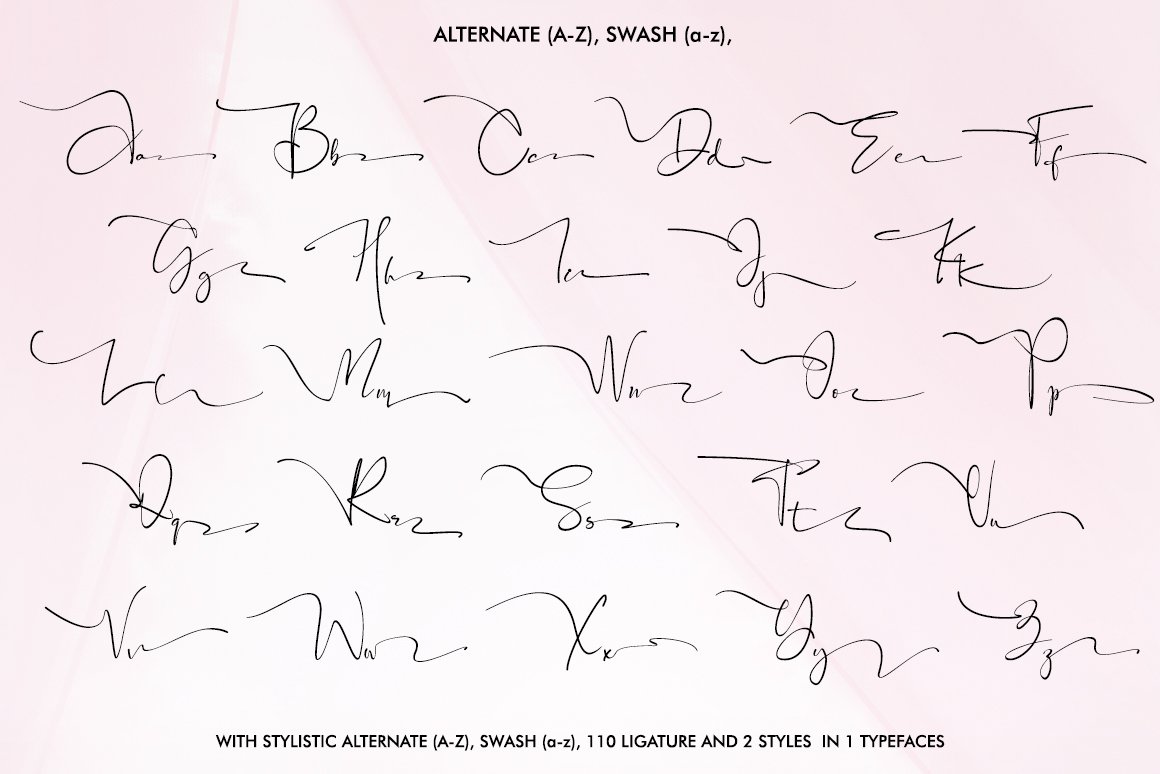 ALTERNATE (A-Z), SWASH (a-z),
Aa Bb Cc Dd Ee Ff
Gg Hh Ii Jj Kk
Ll Mm Nn Oo Pp
Qq Rr Ss Tt Uu
Vv Ww Xx Yy Zz
WITH STYLISTIC ALTERNATE (A-Z), SWASH (a-z), 110 LIGATURE AND 2 STYLES IN 1 TYPEFACES